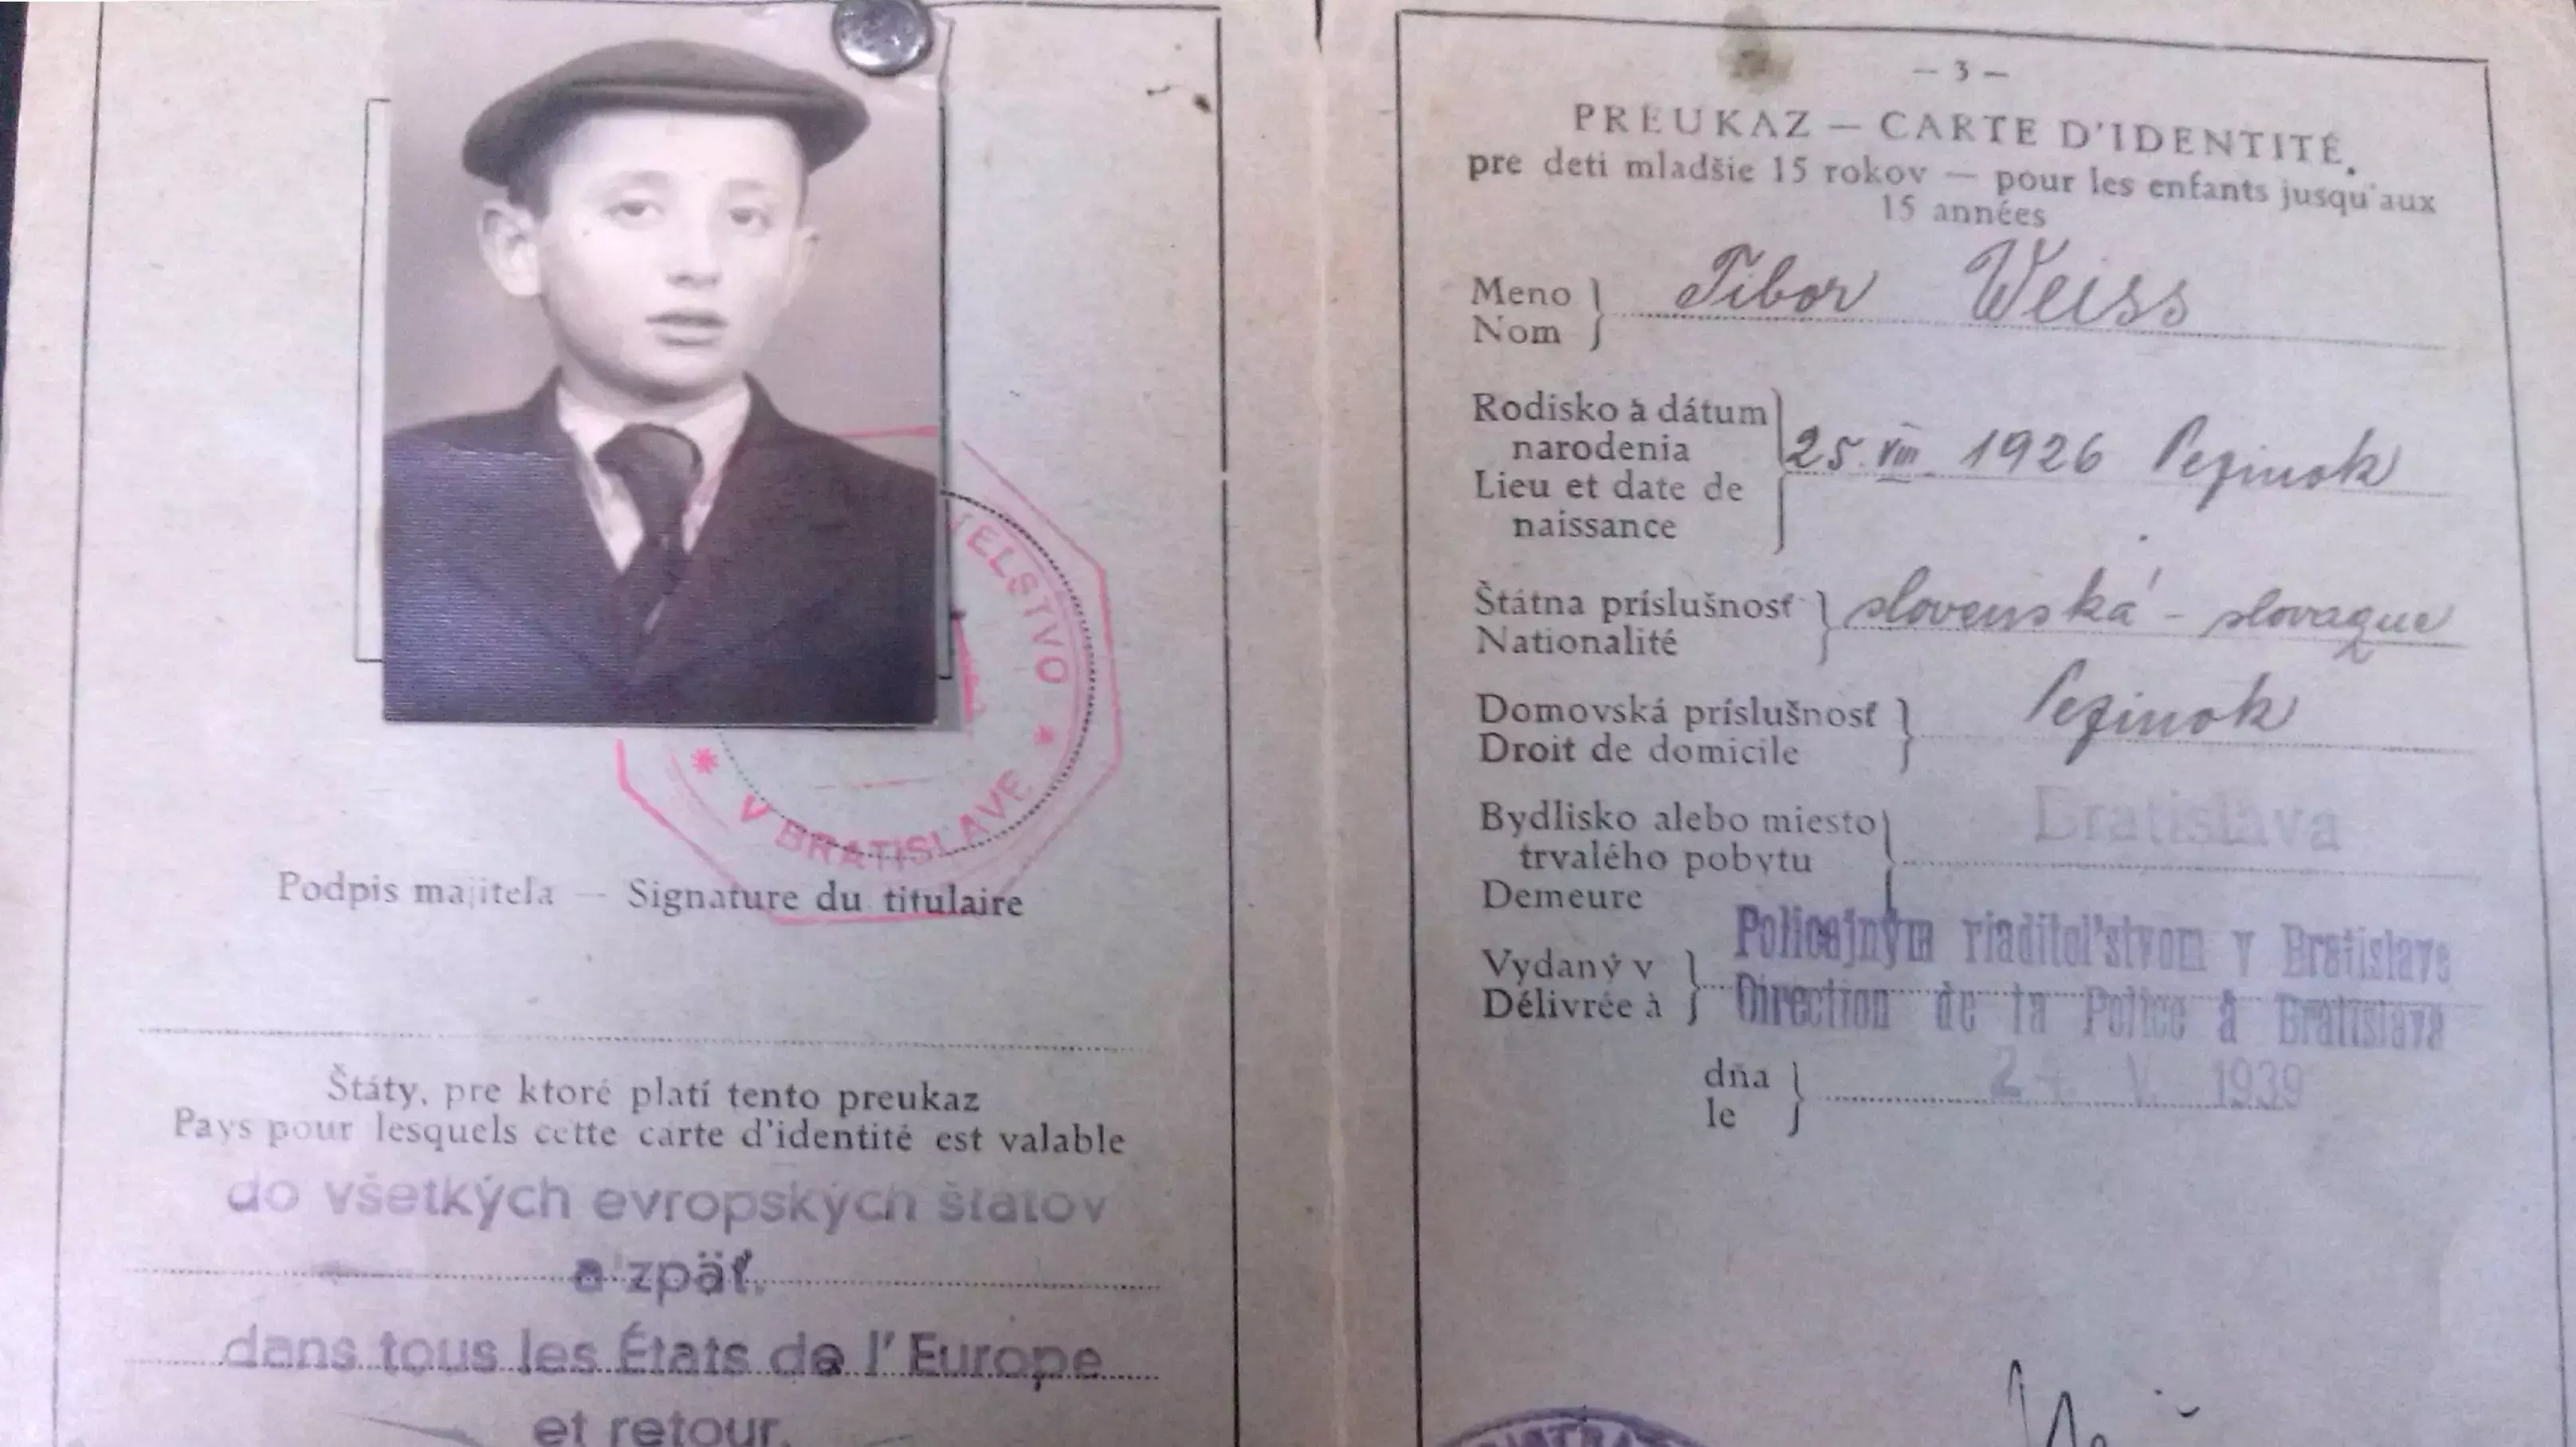 TELSTVO
* V BRATISLAVE *
Podpis majiteľa — Signature du titulaire
Štáty, pre ktoré platí tento preukaz
Pays pour lesquels cette carte d'identité est valable
do všetkých evropských štatov
a zpäť.
dans tous les États de l'Europe
et retour.
— 3 —
PREUKAZ — CARTE D'IDENTITÉ.
pre deti mladšie 15 rokov — pour les enfants jusqu'aux
15 années
Meno
Nom
Tibor Weiss
Rodisko a dátum
narodenia
Lieu et date de
naissance
25. VIII 1926 Pezinok
Štátna príslušnosť
Nationalité
slovenská - slovaque
Domovská príslušnosť
Droit de domicile
Pezinok
Bydlisko alebo miesto
trvalého pobytu
Demeure
Bratislava
Vydaný v
Délivrée à
Policajným riaditeľstvom v Bratislave
Direction de la Police à Bratislava
dňa
le
V. 1939